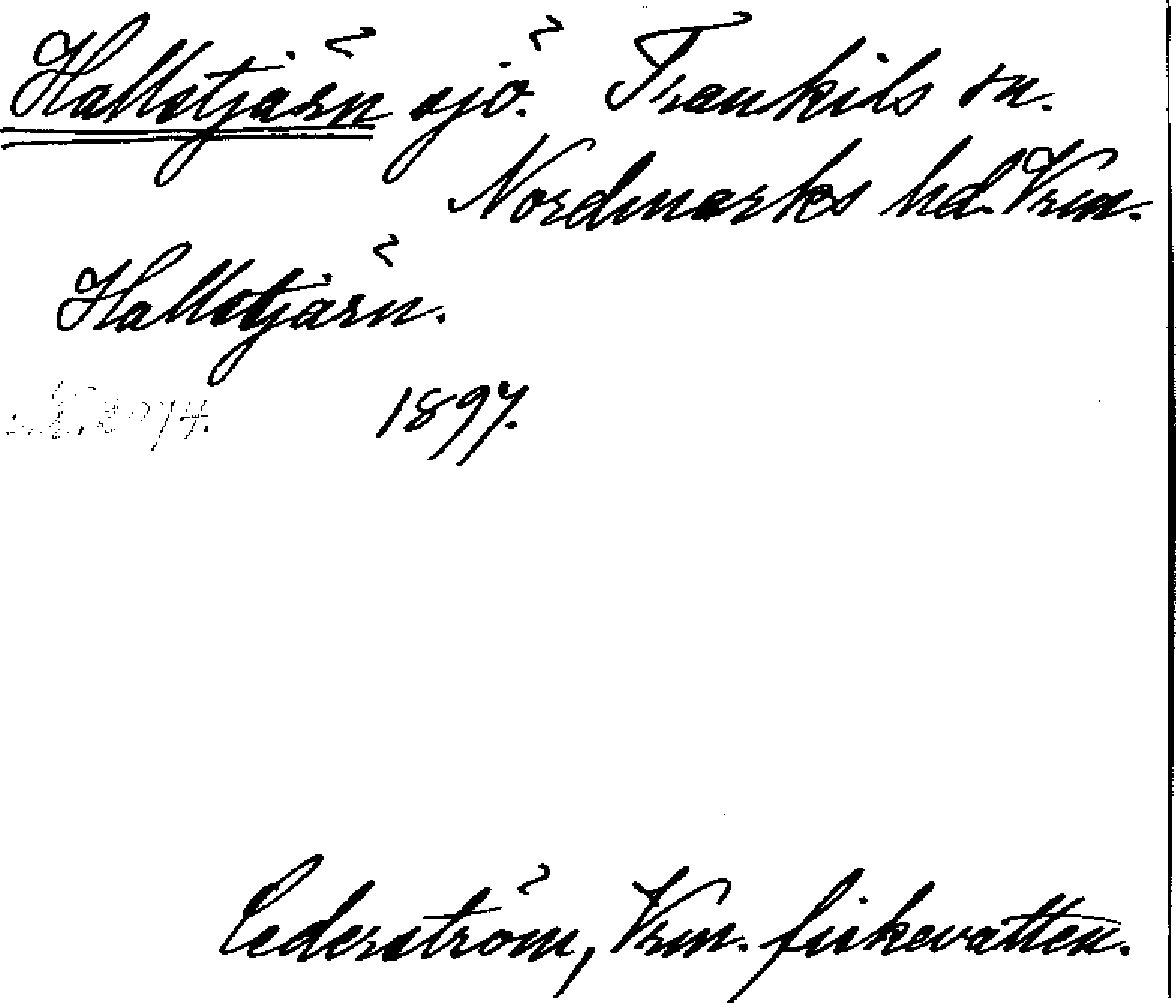 Hallstjärn sjö. Trankils sn.
Nordmarks hd. Vrm.
Hallstjärn.
1897.
Cederström, Vrm. fiskevatten.